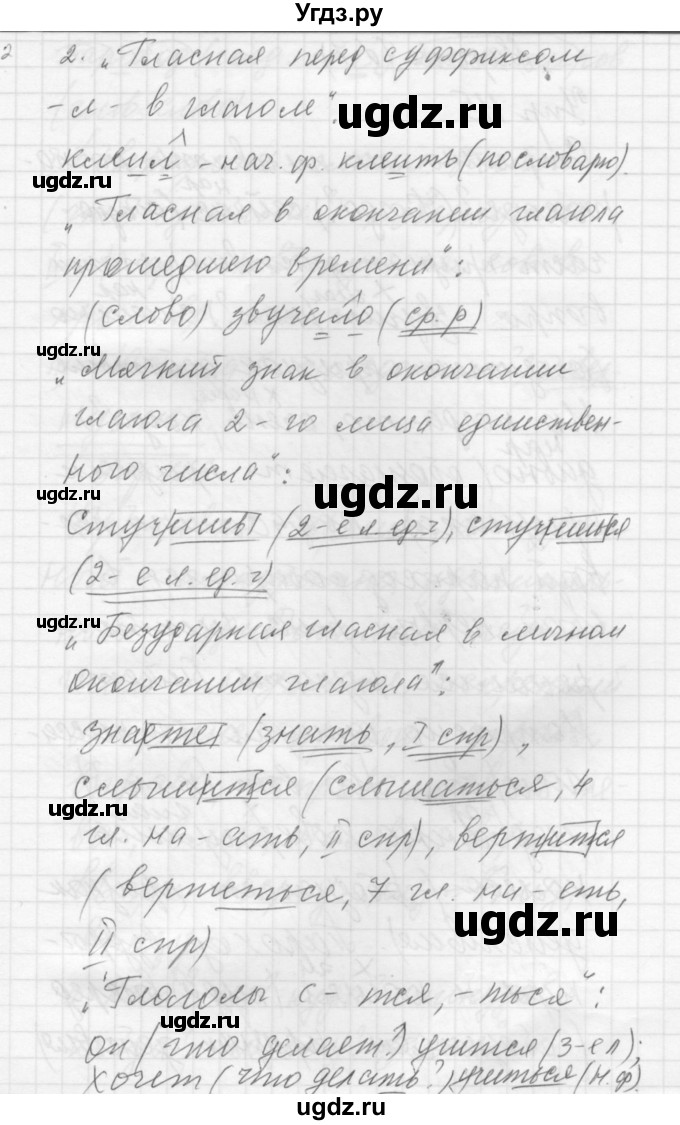 Угдз.ру
2 2. „Гласная перед суффиксом
-л- в глаголе":
клеил – нач. ф. клеить (по словарю).
„Гласная в окончании глагола
прошедшего времени":
(слово) звучало (ср. р)
„Мягкий знак в окончании
глагола 2-го лица единствен-
ного числа":
Стучишь (2-е л. ед. ч), стучишься
(2-е л. ед. ч)
„Безударная гласная в личном
окончании глагола":
знаете (знать, I спр),
слышится (слышаться, 4
гл. на -ать, II спр), вертится
(вертеться, 7 гл. на -еть,
II спр)
„Глаголы с -тся, -ться":
он (что делает?) учится (3-е л);
хочет (что делать?) учиться (н. ф).
ugdz.ru
ugdz.ru
ugdz.ru
ugdz.ru
ugdz.ru
ugdz.ru
ugdz.ru
ugdz.ru
ugdz.ru
ugdz.ru
ugdz.ru